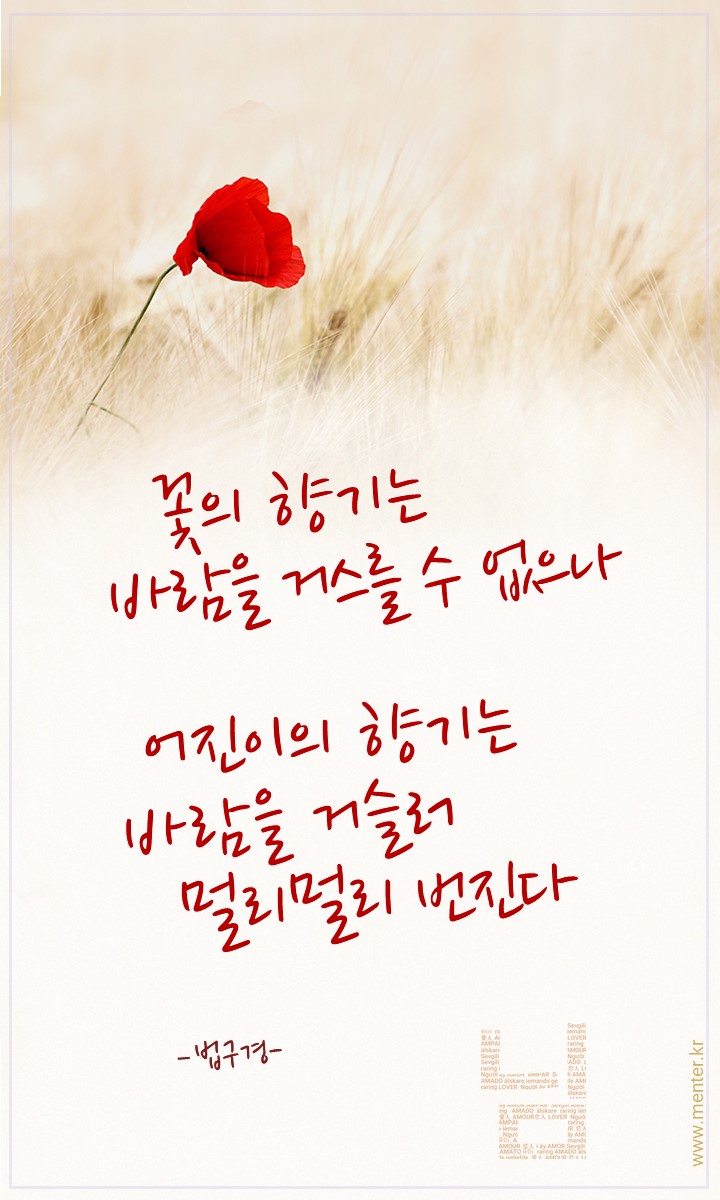 꽃의 향기는
바람을 거스를 수 없으나
어진이의 향기는
바람을 거슬러
멀리멀리 번진다
-법구경-
www.menter.kr